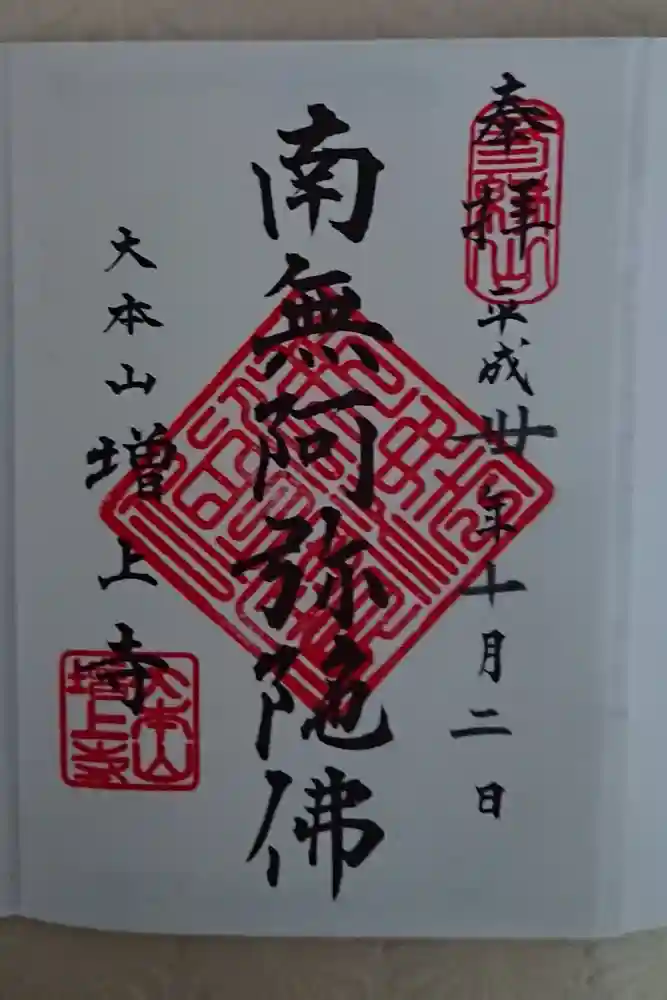 奉拝
平成卅年十月二日
南無阿弥陀佛
大本山
増上寺
大本山
増上寺